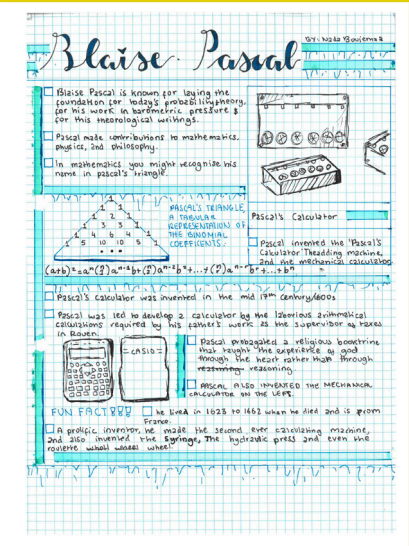 Blaise Pascal
BY: Nada Boujemaa
Blaise Pascal is known for laying the
foundation for today's probability theory,
for his work in barometric pressure &
for this theorological writings.
Pascal made contributions to mathematics,
physics, and philosophy.
In mathematics you might recognise his
name in pascal's triangle.
1
1 1
1 2 1
1 3 3 1
1 4 6 4 1
1 5 10 10 5 1
PASCAL'S TRIANGLE,
A TABULAR
REPRESENTATION OF
THE BINOMIAL
COEFFICENTS.
Pascal's Calculator
Pascal invented the 'Pascal's
Calculator The adding machine,
and the mechanical calculator
Pascal's calculator was invented in the mid 17th century/600s
Pascal was led to develop a calculator by the laborious arithmatical
calculations required by his father's work as the supervisor of taxes
in Rouen.
CASIO
Pascal probogated a religious booctrine
that taught the experience of god
through the heart rather than through
reasoning reasoning
PASCAL ALSO INVENTED THE MECHANICAL
CALCULATOR ON THE LEFT.
FUN FACT!!! he lived in 1623 to 1662 when he died and is from
France.
A prolific inventor, he made the second ever calculating machine,
and also invented the syringe, The hydraulic press and even the
roulette wheel.